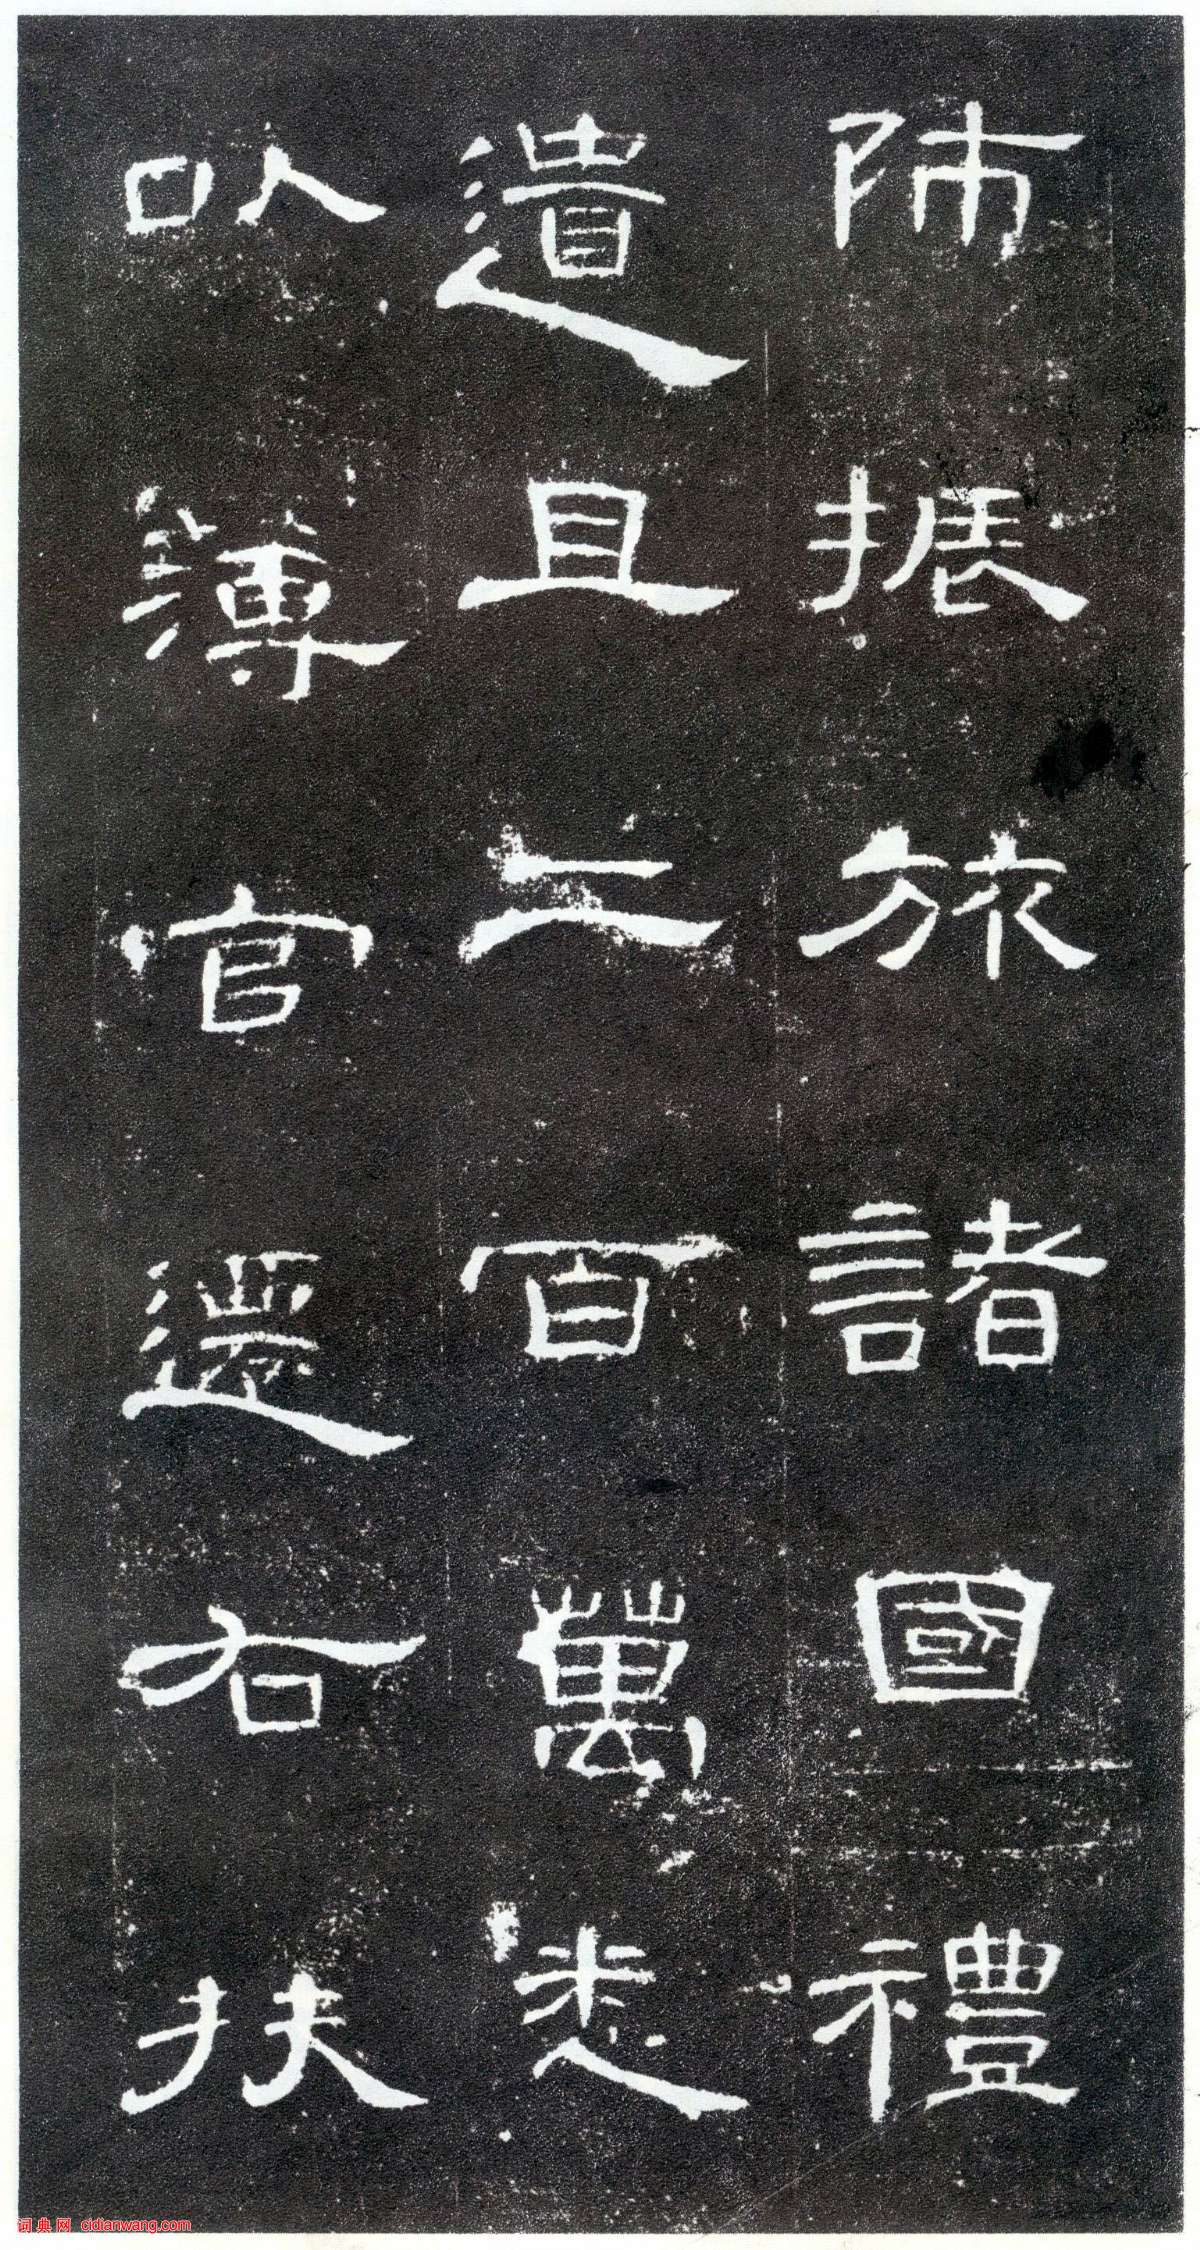 師振旅諸國禮
遺且二百萬悉
以簿官還右扶
词典网 cidianwang.com